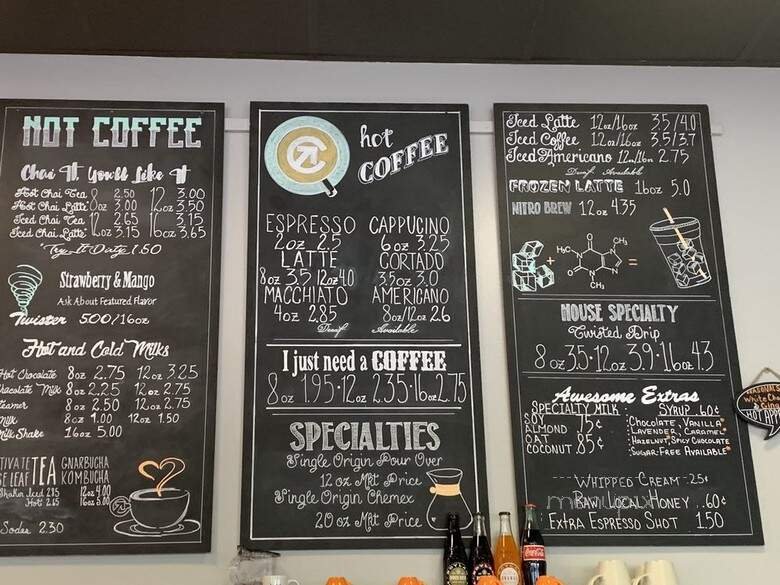 NOT COFFEE
Chai It You'll Like It
Hot Chai Tea 8oz 2.50 12oz 3.00
Hot Chai Latte 8oz 3.00 12oz 3.50
Iced Chai Tea 12oz 2.65 16oz 3.15
Iced Chai Latte 12oz 3.15 16oz 3.65
"Try It Dirty" 1.50
Strawberry & Mango
Ask About Featured Flavor
Twister 5.00/16oz
Hot and Cold Milks
Hot Chocolate 8oz 2.75 12oz 3.25
Chocolate Milk 8oz 2.25 12oz 2.75
eamer 8oz 2.50 12oz 2.75
Milk 8oz 1.00 12oz 1.50
Milk Shake 16oz 5.00
TIVATE
SE LEAF TEA
GNARBUCHA
KOMBUCHA
Iced 2.15 12oz 4.00
Hot 2.65 16oz 5.00
Soda 2.30
hot
COFFEE
ESPRESSO CAPPUCINO
2oz 2.5 6oz 3.25
LATTE CORTADO
8oz 3.5 12oz 4.0 3.5oz 3.0
MACCHIATO AMERICANO
4oz 2.85 8oz/12oz 2.6
Decaf Available
I just need a COFFEE
8oz 1.95·12oz 2.35·16oz 2.75
SPECIALTIES
Single Origin Pour Over
12 oz Mkt Price
Single Origin Chemex
20 oz Mkt Price
Iced Latte 12oz/16oz 3.5/4.0
Iced Coffee 12oz/16oz 3.5/3.7
Iced Americano 12oz/16oz 2.75
Decaf Available
FROZEN LATTE 16oz 5.0
NITRO BREW 12oz 4.35
H₃C CH₃
+ =
CH₃
HOUSE SPECIALTY
Twisted Drip
8oz 3.5·12oz 3.9·16oz 4.3
Awesome Extras
SPECIALTY MILK: SYRUP 60¢
SOY 75¢
ALMOND
OAT 85¢
COCONUT
CHOCOLATE, VANILLA
LAVENDER, CARAMEL
HAZELNUT, SPICY CHOCOLATE
"SUGAR-FREE AVAILABLE"
WHIPPED CREAM - 25¢
RAW LOCAL HONEY ..60¢
EXTRA ESPRESSO SHOT 1.50
White Cho
& Ging
Coca-Cola